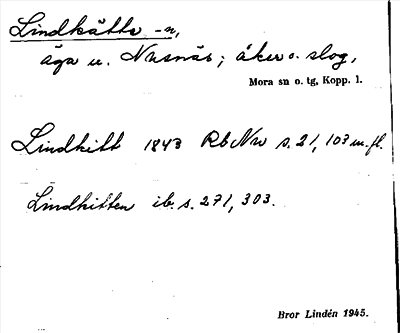 Lindkätte -n,
äga u. Nusnäs; åker o. slog,
Mora sn o. tg, Kopp. l.
Lindkitt 1843 Rb Nu s. 21, 103 m. fl.
Lindkitten ib. s. 271, 303.
Bror Lindén 1945.